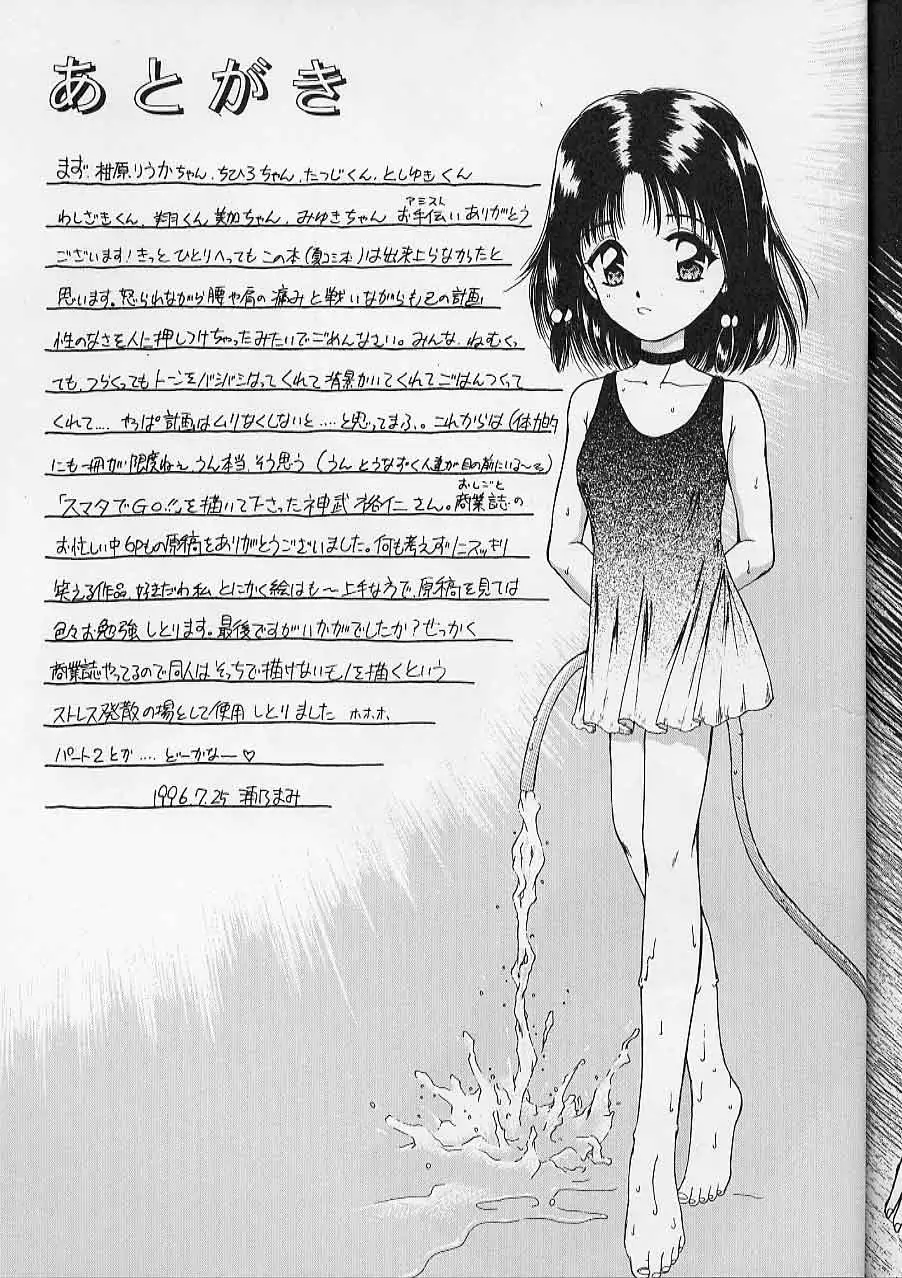 あとがき
まず、柑原りうかちゃん、ちひろちゃん、たつじくん、としゆきくん
わしざきくん、翔くん、美加ちゃん、みゆきちゃん お手伝いありがとう
アシスト
ございます！きっと ひとりへっても この本（夏コミ本）は出来上らなかったと
思います。怒られながら腰や肩の痛みと戦いながらも己の計画
性のなさを人に押しつけちゃったみたいでごめんなさい。みんな、ねむくっ
ても、つらくってもトーンをバシバシはってくれて背景かいてくれてごはんつくって
くれて‥‥ やっぱ計画はムリなくしないと‥‥と思ってまふ。これからは（体力的
にも一冊が限度ねェ、うん本当、そう思う（うんとうなずく人達が目の前にいる〜
「スマタでGO!!」を描いて下さった神武裕仁さん。商業誌の
おしごと
お忙しい中6Pもの原稿をありがとうございました。何も考えずにスッキリ
笑える作品、好きだわ私、とにかく絵はも〜上手なので、原稿を見ては
色々お勉強しとります。最後ですがいかがでしたか？せっかく
商業誌やってるので同人はそっちで描けないモノを描くという
ストレス発散の場として使用しとりました ホホホ、
パート2とか‥‥どーかなー♡
1996.7.25 まみ